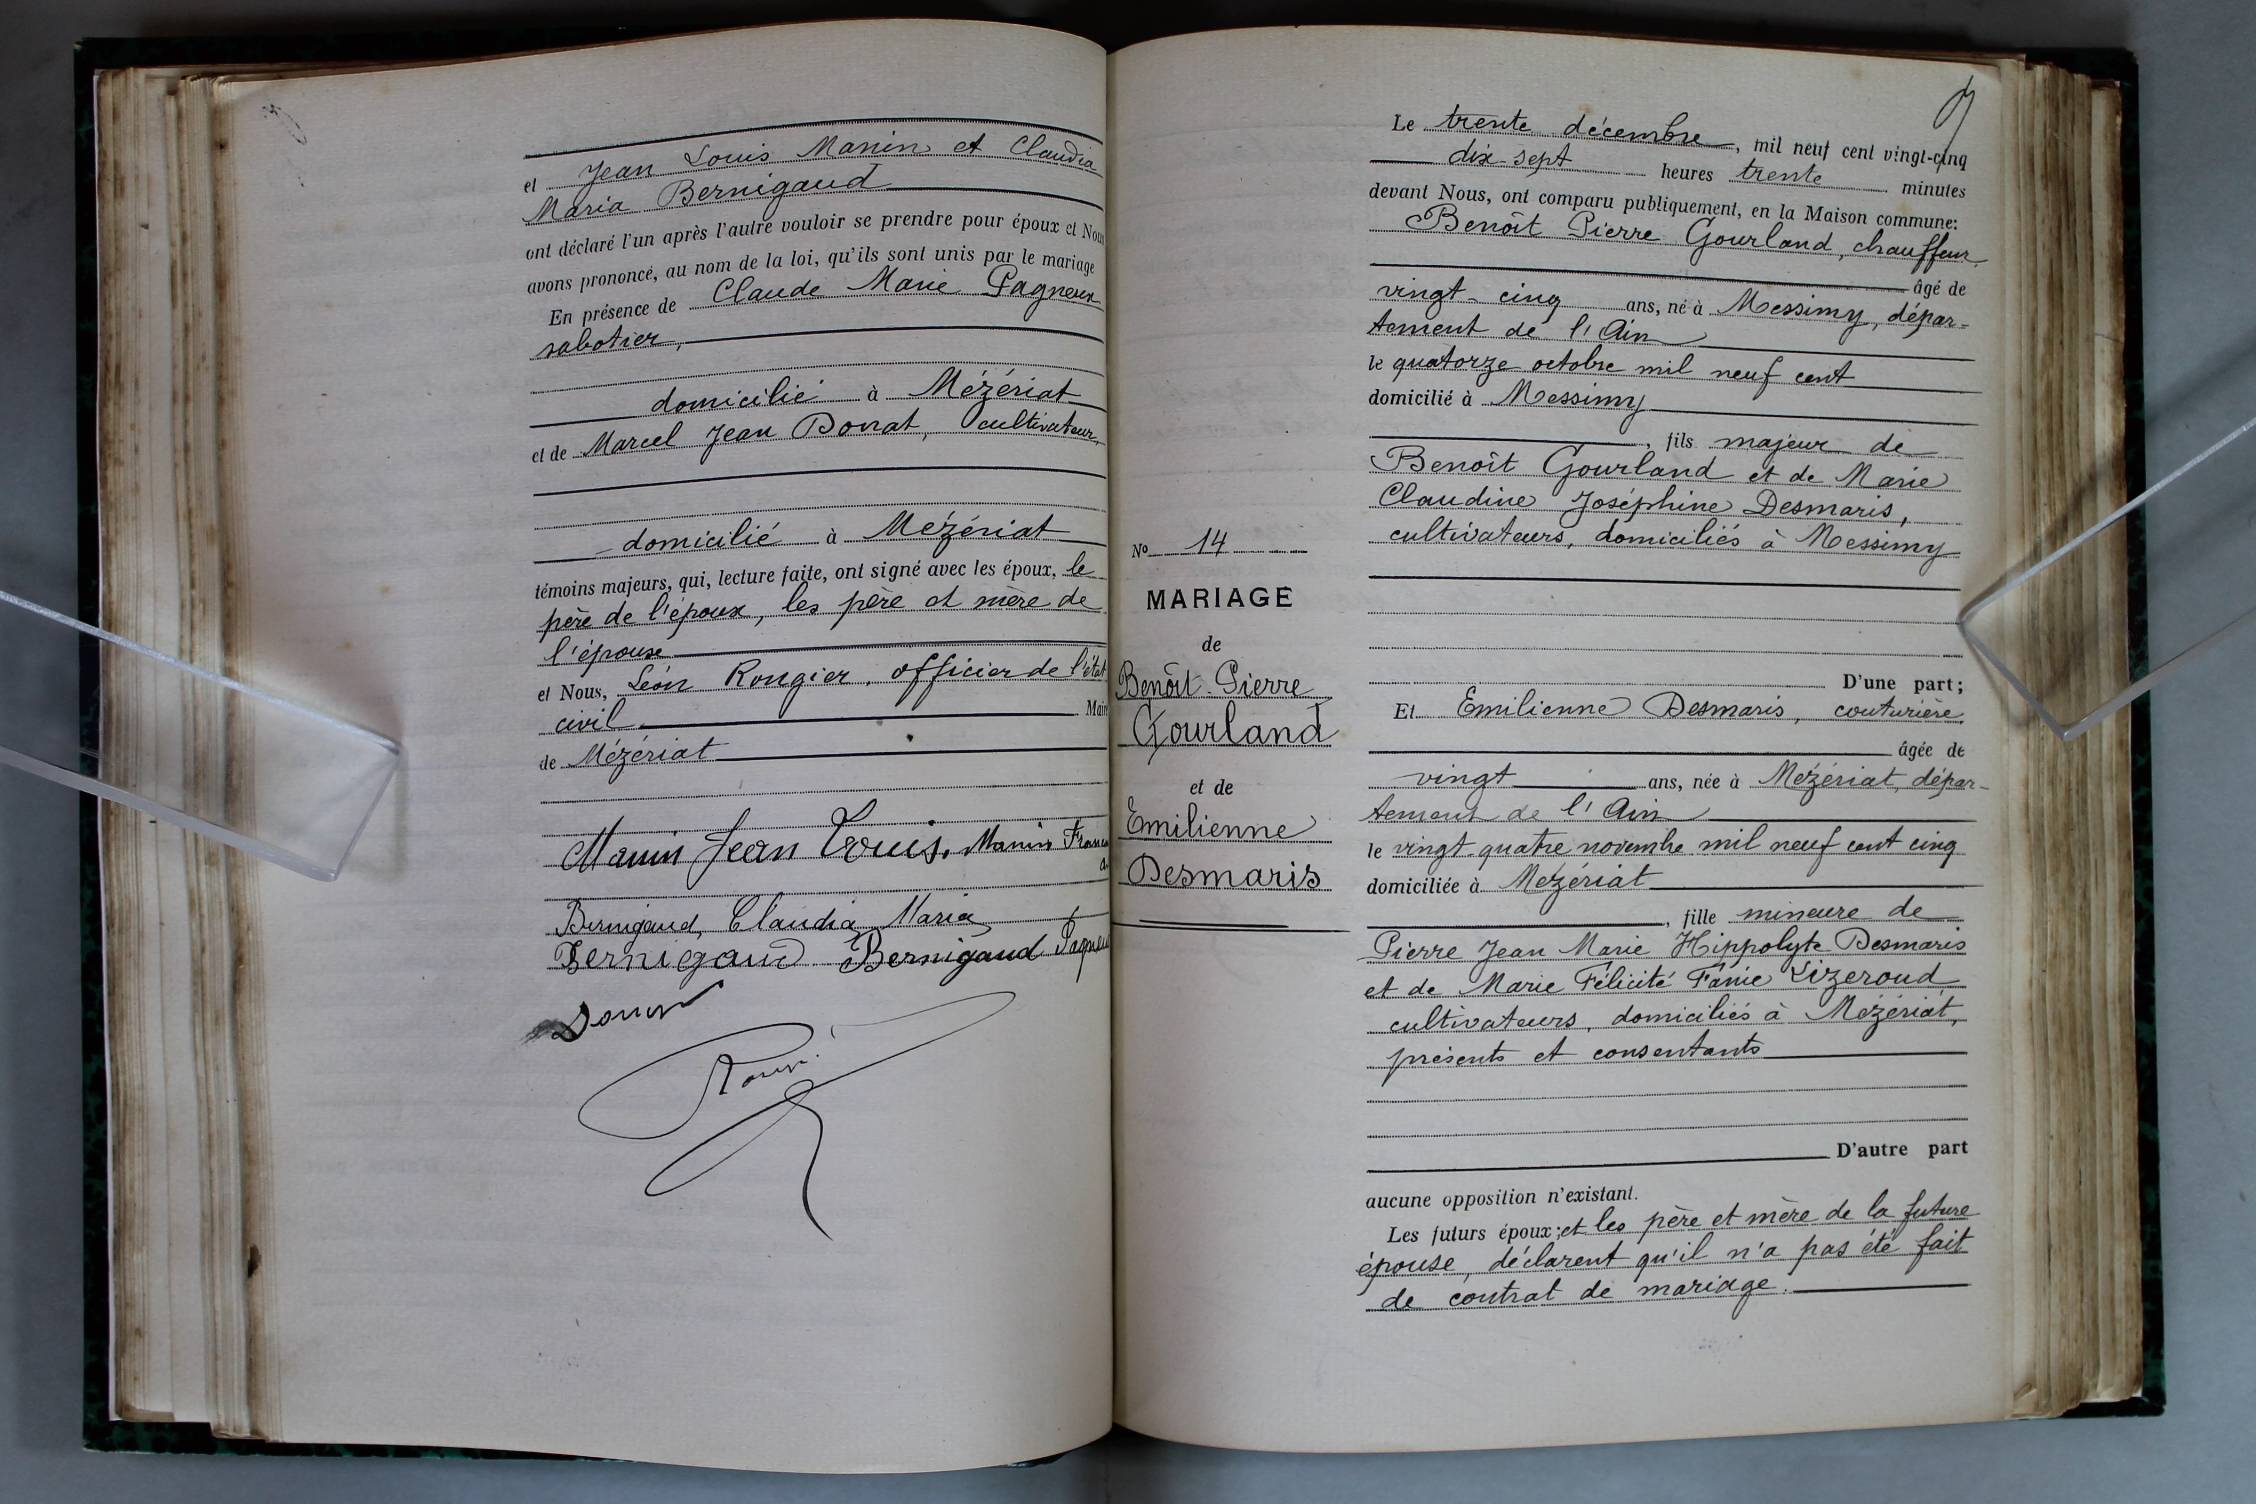 et Jean Louis Manin et Claudia
Maria Bernigaud
ont déclaré l'un après l'autre vouloir se prendre pour époux et Nous
avons prononcé, au nom de la loi, qu'ils sont unis par le mariage
En présence de Claude Marie Pagneux
sabotier,
domicilié à Mézériat
et de Marcel Jean Donat, cultivateur,
domicilié à Mézériat
témoins majeurs, qui, lecture faite, ont signé avec les époux, le
père de l'époux, les père et mère de
l'épouse
et Nous, Léon Rongier, officier de l'état
civil Maire
de Mézériat
Manin Jean Louis. Manin
Bernigaud, Claudia Maria
Bernigaud Bernigaud Pagneux
N° 14
MARIAGE
de
Benôit Pierre
Gourland
et de
Emilienne
Desmaris
Le trente décembre, mil neuf cent vingt-cinq
dix sept heures trente minutes
devant Nous, ont comparu publiquement, en la Maison commune:
Benoît Pierre Gourland, chauffeur
âgé de
vingt-cinq ans, né à Messimy, dépar-
tement de l'Ain
le quatorze octobre mil neuf cent
domicilié à Messimy
, fils majeur de
Benoît Gourland et de Marie
Claudine Joséphine Desmaris,
cultivateurs, domiciliés à Messimy
D'une part;
Et Emilienne Desmaris, couturière,
âgée de
vingt ans, née à Mézériat, dépar-
tement de l'Ain
le vingt-quatre novembre mil neuf cent cinq
domiciliée à Mézériat
, fille mineure de
Pierre Jean Marie Hippolyte Desmaris
et de Marie Félicité Fánie Lizeroud
cultivateurs, domiciliés à Mézériat,
présents et consentants
D'autre part
aucune opposition n'existant.
Les futurs époux; et les père et mère de la future
épouse, déclarent qu'il n'a pas été fait
de contrat de mariage.